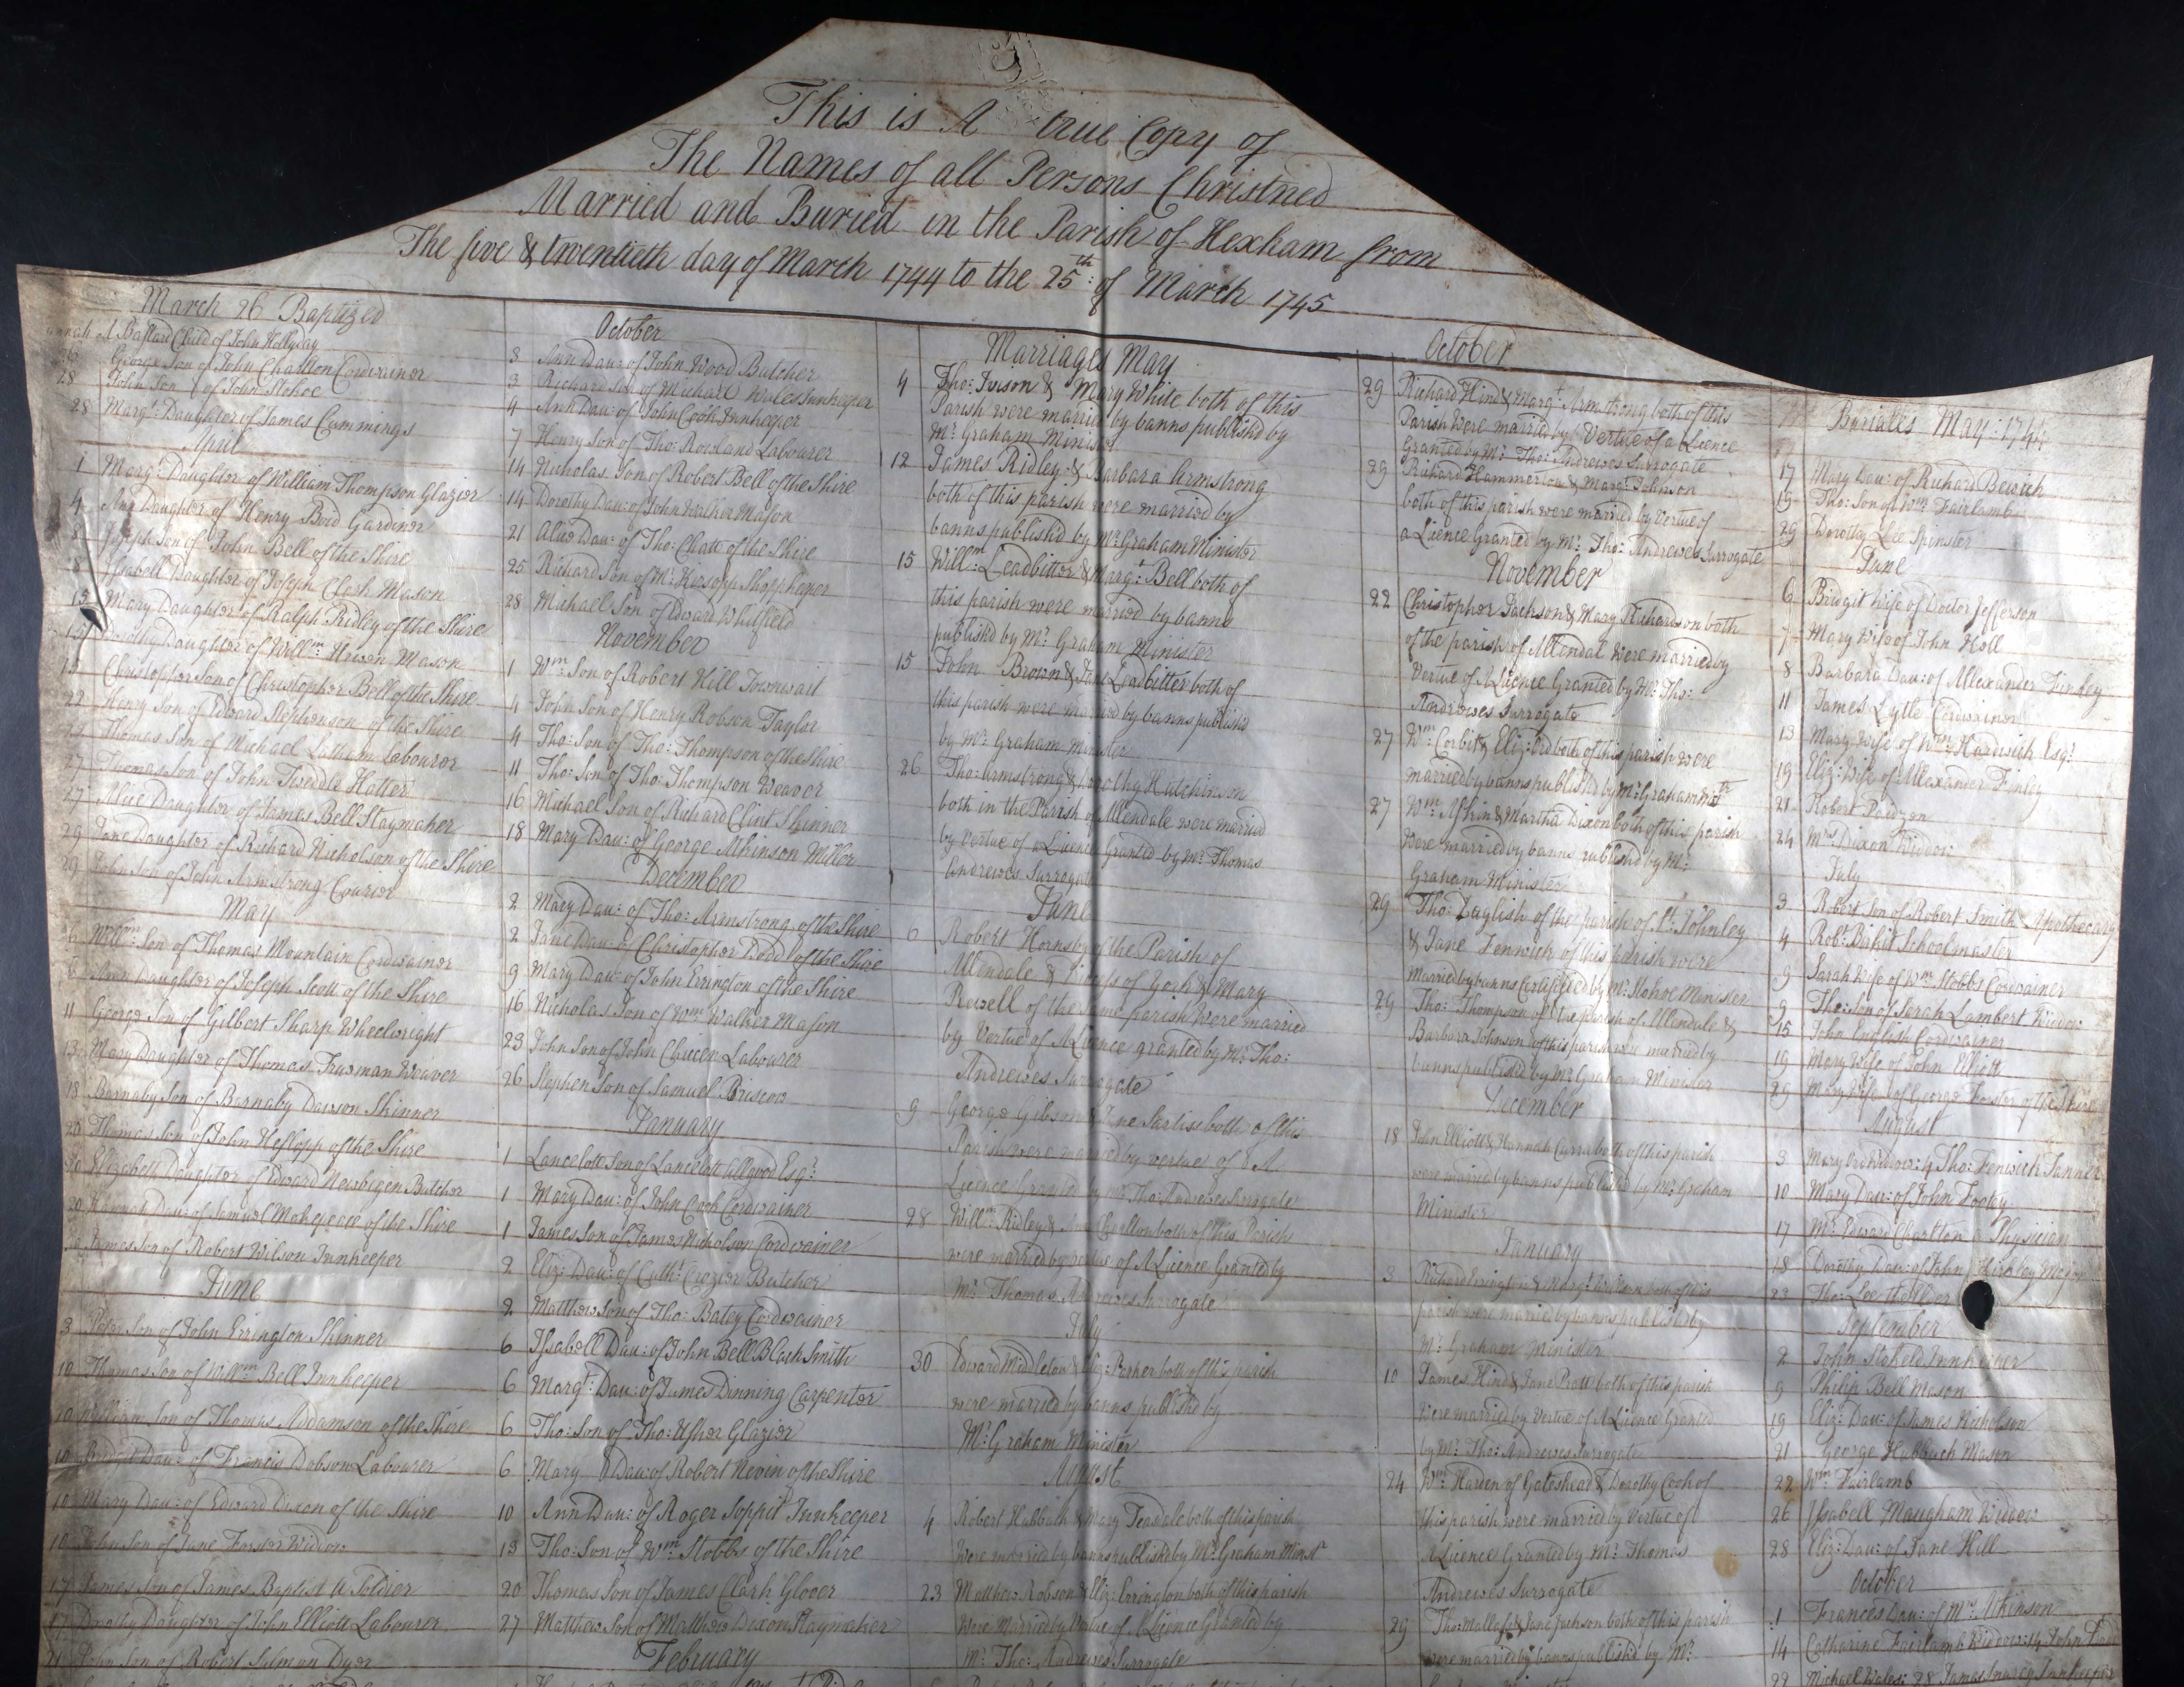 This is A true Copy of
The Names of all Persons Christned
Married and Buried in the Parish of Hexham from
The five & twentieth day of March 1744 to the 25th: of March 1745
March 26 Baptized
A Bastard Child of John Hollyday
26 George Son of John Charlton Cordwainer
28 John Son of John Stokoe
28 Margt: Daughter of James Cummings
April
1 Margt: Daughter of William Thompson Glazier
4 Ann Daughter of Henry Boid Gardiner
8 Joseph Son of John Bell of the Shire
8 Isabell Daughter of Joseph Clark Mason
15 Mary Daughter of Ralph Ridley of the Shire
15 Dorothy Daughter of Willm: Mason
15 Christopher Son of Christopher Bell of the Shire
22 Henry Son of Edward Stephenson of the Shire
Thomas Son of Michael Latham Labourer
27 Thomas Son of John Tweddle Hatter
27 Alice Daughter of James Bell Staymaker
29 Jane Daughter of Richard Nicholson of the Shire
29 John Son of John Armstrong Courier
May
6 Willm: Son of Thomas Mountain Cordwainer
6 Ann Daughter of Joseph Scott of the Shire
11 George Son of Gilbert Sharp Wheelwright
13 Mary Daughter of Thomas Weaver
18 Barnaby Son of Barnaby Dawson Skinner
20 Thomas Son of John Heslopp of the Shire
20 Elizabeth Daughter of Edward Newbigen Butcher
20 Hannah Dau: of Samuel Makepeace of the Shire
James Son of Robert Wilson Innkeeper
June
3 Peter Son of John Errington Skinner
10 Thomas Son of Willm Bell Innkeeper
10 William Son of Thomas Addamson of the Shire
10 Bridget Dau: of Francis Dobson Labourer
10 Mary Dau: of Edward Dixon of the Shire
10 John Son of Jane Forster Widow
17 James Son of James Baptist A Soldier
17 Dorothy Daughter of John Elliott Labourer
21 John Son of Robert Salmon Dyer
October
3 Ann Dau: of John Wood Butcher
3 Richard Son of Michael Wales Innkeeper
4 Ann Dau: of John Cook Innkeeper
7 Henry Son of Tho: Rowland Labourer
14 Nicholas Son of Robert Bell of the Shire
14 Dorothy Dau: of John Walker Mason
21 Alice Dau: of Tho: Chatt of the Shire
25 Richard Son of Mr: Kersopp Shoppkeeper
28 Michael Son of Edward Whitfield
November
1 Wm: Son of Robert Hill Townwait
4 John Son of Henry Robson Taylor
4 Tho: Son of Tho: Thompson of the Shire
11 Tho: Son of Tho: Thompson Weaver
16 Michael Son of Richard Clint Skinner
18 Mary Dau: of George Atkinson Miller
December
2 Mary Dau: of Tho: Armstrong of the Shire
2 Jane Dau: of Christopher Dodd of the Shire
9 Mary Dau: of John Errington of the Shire
16 Nicholas Son of Wm Walker Mason
23 John Son of John Labourer
26 Stephen Son of Samuel Briscow
January
1 Lancelott Son of Lancelott Allgood Esqr:
1 Mary Dau: of John Cook Cordwainer
1 James Son of James Nicholson Cordwainer
2 Eliz: Dau: of Cutht: Crozier Butcher
2 Matthew Son of Tho: Batey Cordwainer
6 Isabell Dau: of John Bell Black Smith
6 Margt: Dau: of James Dinning Carpenter
6 Tho: Son of Tho: Usher Glazier
6 Mary Dau: of Robert Nevin of the Shire
10 Ann Dau: of Roger Soppit Innkeeper
13 Tho: Son of Wm Stobbs of the Shire
20 Thomas Son of James Clark Glover
27 Matthew Son of Matthew Dixon Staymaker
February
Marriages May
4 Tho: Iveson & Mary White both of this
Parish were married by banns publishd by
Mr: Graham Minister
12 James Ridley & Barbara Armstrong
both of this parish were married by
banns publishd by Mr Graham Minister
15 Willm: Leadbitter & Margt: Bell both of
this parish were married by banns
publishd by Mr: Graham Minister
15 John Brown & Jane Leadbitter both of
this parish were married by banns publishd
by Mr: Graham Minister
26 Tho: Armstrong & Dorothy Hutchinson
both in the Parish of Allendale were married
by Vertue of a Licence Granted by Mr: Thomas
Andrewes Surrogate
June
6 Robert Hornsby of the Parish of
Allendale & & Mary
Rowell of the Same parish were married
by Vertue of A Licence granted by Mr: Tho:
Andrewes Surrogate
9 George Gibson & Jane both of this
Parish were married by vertue of A
Licence Granted by Mr: Tho: Andrewes Surrogate
28 Willm: Ridley & Charlton both of this Parish
were married by vertue of A Licence Granted by
Mr: Thomas Andrewes Surrogate
July
30 Edward Middleton & Eliz: Parker both of this parish
were married by banns publishd by
Mr: Graham Minister
August
4 Robert Hubbuck & Mary Teasdale both of this parish
were married by banns publishd by Mr: Graham Ministr
23 Matthew Robson & Eliz: Errington both of this parish
were Married by Vertue of A Licence Granted by
Mr: Tho: Andrewes Surrogate
October
29 Richard Hind & Margt: Armstrong both of this
Parish were married by Vertue of a Licence
Granted by Mr: Tho: Andrewes Surrogate
29 Richard Hammerton & Margt: Johnson
both of this parish were married by Vertue of
a Licence Granted by Mr: Tho: Andrewes Surrogate
November
22 Christopher Jackson & Mary Richardson both
of the parish of Allendal were married by
Vertue of A Licence Granted by Mr: Tho:
Andrewes Surrogate
27 Wm: Corbit & Eliz: Ord both of this parish were
married by banns publishd by Mr: Graham
27 Wm & Martha Dixon both of this parish
were married by banns publishd by Mr:
Graham Minister
29 Tho: English of the parish of St: Johnley
& Jane Fenwick of this parish were
married by banns Certifyed by Mr: Stokoe Minister
29 Tho: Thompson of the parish of Allendale &
Barbara Johnson of this parish were married by
banns publishd by Mr Graham Minister
December
18 John Elliott & Hannah both of this parish
were married by banns publishd by Mr: Graham
Minister
January
3 Richard Errington & Margt: both of this
parish were married by banns publishd by
Mr: Graham Minister
10 James Hind & Jane both of this parish
were married by Vertue of A Licence Granted
by Mr: Tho: Andrewes Surrogate
24 Wm: of Gateshead & Dorothy Cook of
this parish were married by Vertue of
A Licence Granted by Mr: Thomas
Andrewes Surrogate
29 Tho: & Jane Jackson both of this parish
were married by banns publishd by Mr:
Buriales May: 1744
17 Mary Dau: of Richard Bewick
19 Tho: Son of Wm Fairlamb
29 Dorothy Lee Spinster
June
6 Bridgit Wife of Doctor Jefferson
7 Mary Wife of John Holl
8 Barbara Dau: of Allexander Finley
11 James Lytle Cordwainer
13 Mary Wife of Wm: Hardwick Esqr:
19 Eliz: Wife of Allexander Finley
21 Robert
24 Mrs Dixon Widow
July
3 Robert Son of Robert Smith Apothecary
4 Robt: Schoolmaster
9 Sarah Wife of Wm Stobbs Cordwainer
9 Tho: Son of Sarah Lambert Widow
15 John English Cordwainer
19 Mary Wife of John Elliott
29 Mary Wife of George Forster of the Shire
August
3 Mary Widow: 4 Tho: Fenwick Tanner
10 Mary Dau: of John
17 Mr: Edward Charlton a Physician
18 Dorothy Dau: of John
23 Tho: Lee
September
2 John Innkeeper
9 Philip Bell Mason
19 Eliz: Dau: of James Nicholson
21 George Hubbuck Mason
22 Wm Fairlamb
26 Isabell Maugham Widow
28 Eliz: Dau: of Jane Hill
October
1 Frances Dau: of Mr: Atkinson
14 Catharine Fairlamb Widow: 14 John
22 Michael Wales: 28 James Innkeeper